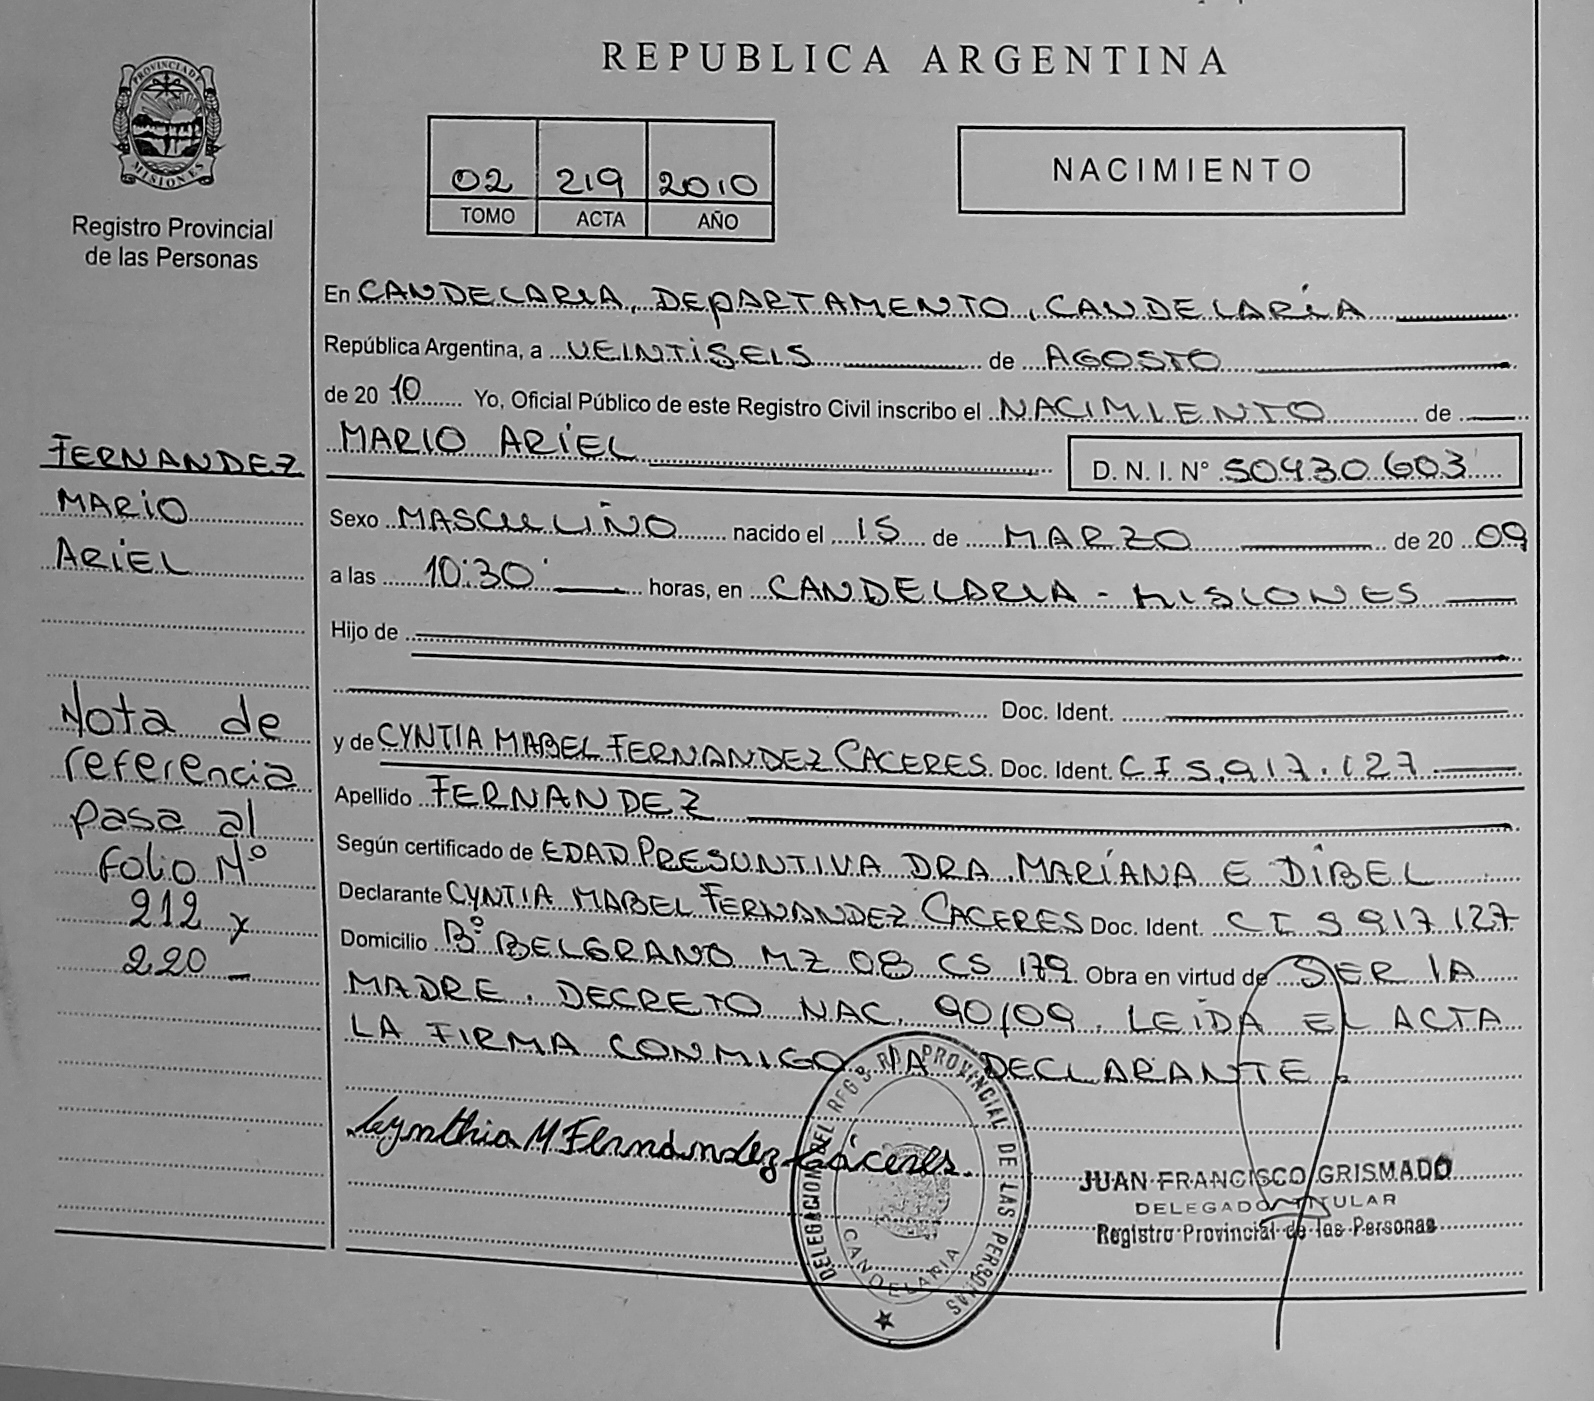 REPUBLICA ARGENTINA
PROVINCIA DE
MISIONES
Registro Provincial
de las Personas
02 219 2010
TOMO ACTA AÑO
NACIMIENTO
En CANDELARIA, DEPARTAMENTO, CANDELARIA
República Argentina, a VEINTISEIS de AGOSTO
de 2010 Yo, Oficial Público de este Registro Civil inscribo el NACIMIENTO de
MARIO ARIEL D. N. I. N° 50430.603
Sexo MASCULINO nacido el 15 de MARZO de 2009
a las 10:30 horas, en CANDELARIA - MISIONES
Hijo de
Doc. Ident.
y de CYNTIA MABEL FERNANDEZ CACERES. Doc. Ident. C I 5.917.127
Apellido FERNANDEZ
Según certificado de EDAD PRESUNTIVA DRA. MARIANA E DIBEL
Declarante CYNTIA MABEL FERNANDEZ CACERES Doc. Ident. C I 5 917 127
Domicilio B° BELGRANO MZ 08 CS 179 Obra en virtud de SER LA
MADRE. DECRETO NAC. 90/09. LEIDA EL ACTA
LA FIRMA CONMIGO LA DECLARANTE.
FERNANDEZ
MARIO
ARIEL
Nota de
referencia
pasa al
folio N°
212 y
220
Cynthia M Fernández Cáceres.
DELEGACION DEL REG. PROVINCIAL DE LAS PERSONAS
CANDELARIA
JUAN FRANCISCO GRISMADO
DELEGADO TITULAR
Registro Provincial de las Personas